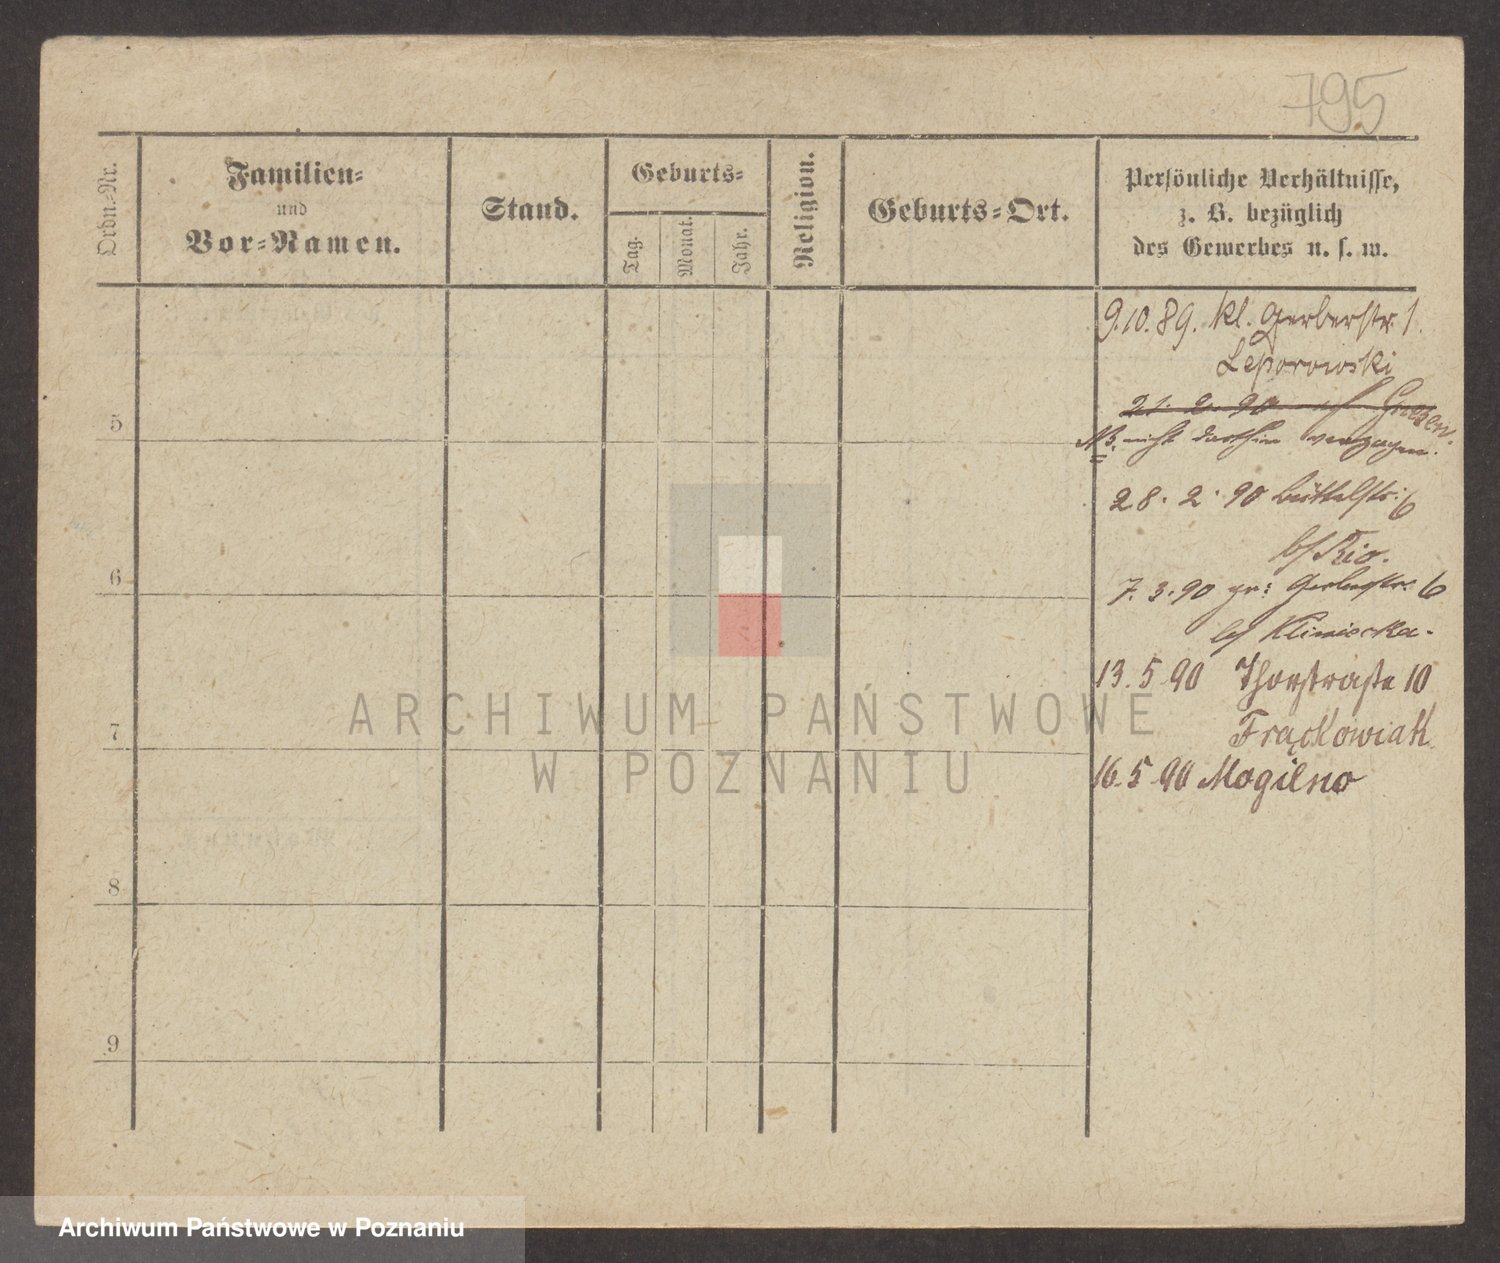 795
Ordn.-Nr.
Familien-
und
Vor-Namen.
Stand.
Geburts-
Tag.
Monat.
Jahr.
Religion.
Geburts-Ort.
Persönliche Verhältnisse,
z. B. bezüglich
des Gewerbes u. s. w.
9.10.89. kl. Gerberstr. 1.
Leporowski
21. 2. 90 Gnesen.
5
NB. nicht dorthin verzogen.
28. 2. 90 Büttelstr. 6
b/ Rio.
6
7. 3. 90 gr: Gerberstr. 6
b/
13. 5. 90 Thorstraße 10
7
Frąckowiak.
16. 5. 90 Mogilno
8
9
ARCHIWUM PAŃSTWOWE
W POZNANIU
Archiwum Państwowe w Poznaniu